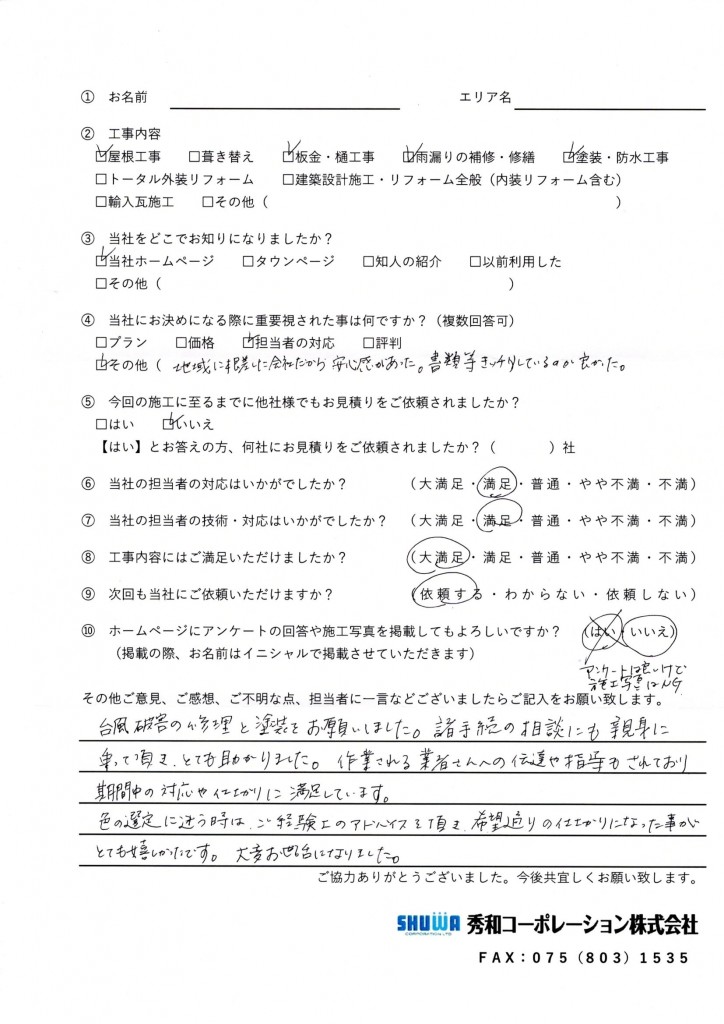 ① お名前 エリア名
② 工事内容
☑屋根工事 □葺き替え ☑板金・樋工事 ☑雨漏りの補修・修繕 ☑塗装・防水工事
□トータル外装リフォーム □建築設計施工・リフォーム全般（内装リフォーム含む）
□輸入瓦施工 □その他（ ）
③ 当社をどこでお知りになりましたか？
☑当社ホームページ □タウンページ □知人の紹介 □以前利用した
□その他（ ）
④ 当社にお決めになる際に重要視された事は何ですか？（複数回答可）
□プラン □価格 ☑担当者の対応 □評判
☑その他（ 地域に根差した会社だから安心感があった。書類等キッチリしているのが良かった。
⑤ 今回の施工に至るまでに他社様でもお見積りをご依頼されましたか？
□はい ☑いいえ
【はい】とお答えの方、何社にお見積りをご依頼されましたか？（ ）社
⑥ 当社の担当者の対応はいかがでしたか？ （大満足・満足・普通・やや不満・不満）
⑦ 当社の担当者の技術・対応はいかがでしたか？ （大満足・満足・普通・やや不満・不満）
⑧ 工事内容にはご満足いただけましたか？ （大満足・満足・普通・やや不満・不満）
⑨ 次回も当社にご依頼いただけますか？ （依頼する・わからない・依頼しない）
⑩ ホームページにアンケートの回答や施工写真を掲載してもよろしいですか？ （はい・いいえ）
（掲載の際、お名前はイニシャルで掲載させていただきます）
アンケートは良いけで
施工写真はNG
その他ご意見、ご感想、ご不明な点、担当者に一言などございましたらご記入をお願い致します。
台風被害の修理と塗装をお願いしました。諸手続の相談にも親身に
乗って頂き、とても助かりました。作業される業者さんへの伝達や指導もされており
期間中の対応や仕上がりに満足しています。
色の選定に迷う時は、ご経験上のアドバイスを頂き、希望通りの仕上がりになった事が
とても嬉しかったです。大変お世話になりました。
ご協力ありがとうございました。今後共宜しくお願い致します。
SHUWA 秀和コーポレーション株式会社
CORPORATION LTD
FAX：075（803）1535